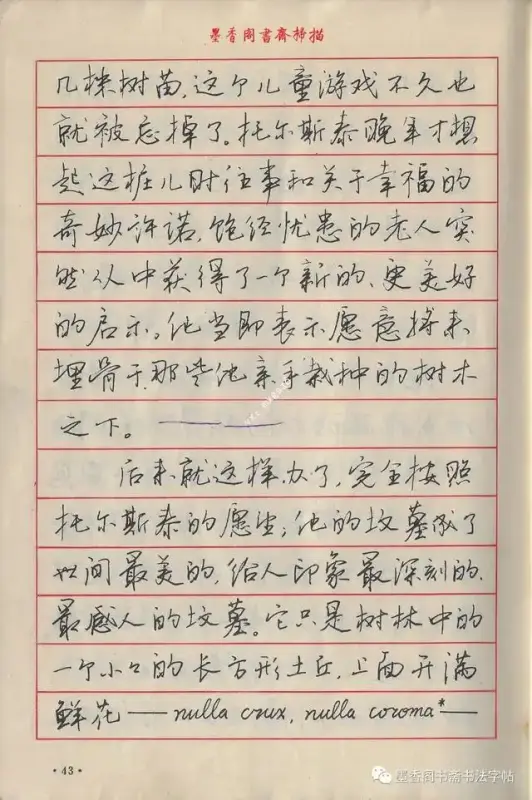 墨香阁書齋掃描
几棵树苗,这个儿童游戏不久也
就被忘掉了。托尔斯泰晚年才想
起这桩儿时往事和关于幸福的
奇妙许诺,饱经忧患的老人突
然从中获得了一个新的、更美好
的启示。他当即表示愿意将来
埋骨于那些他亲手栽种的树木
之下。
后来就这样办了,完全按照
托尔斯泰的愿望;他的坟墓成了
世间最美的,给人印象最深刻的,
最感人的坟墓。它只是树林中的
一个小小的长方形土丘,上面开满
鲜花——nulla crux, nulla coroma*——
·43·
墨香阁书斋书法字帖